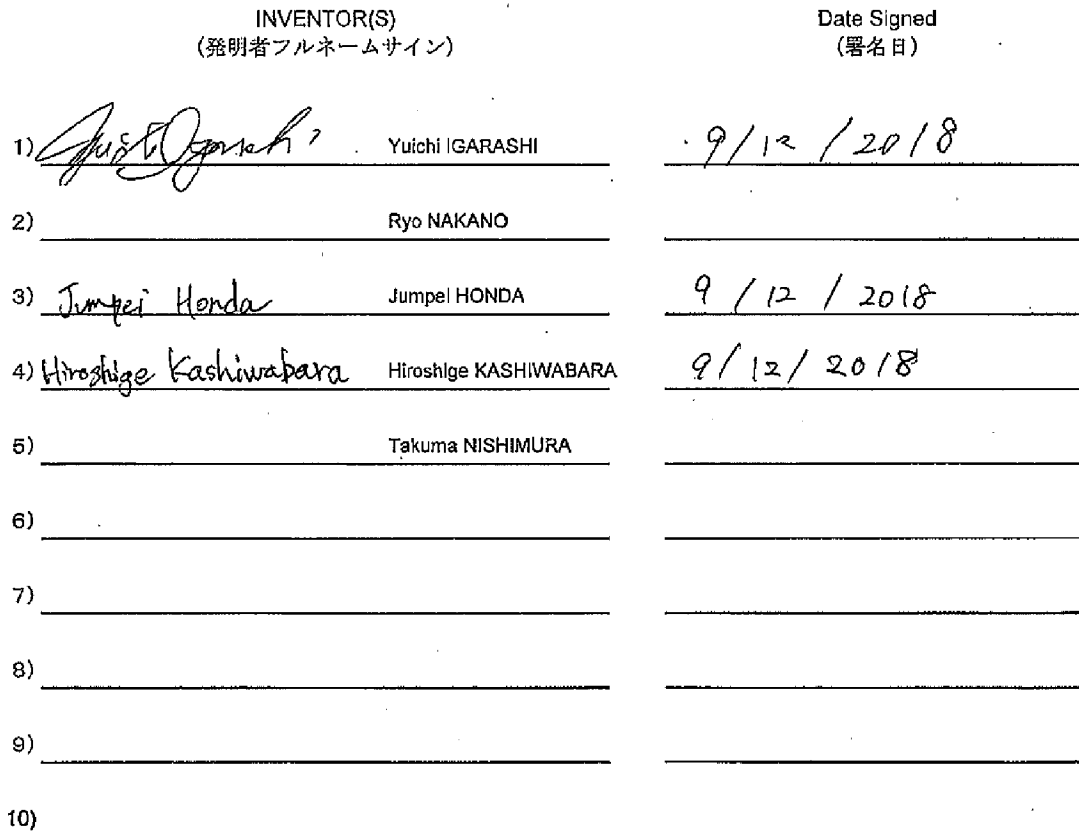 INVENTOR(S) Date Signed
(発明者フルネームサイン) (署名日)
1) Yuichi IGARASHI 9/12/2018
2) Ryo NAKANO
3) Jumpei Honda Jumpei HONDA 9/12/2018
4) Hiroshige Kashiwabara Hiroshige KASHIWABARA 9/12/2018
5) Takuma NISHIMURA
6)
7)
8)
9)
10)